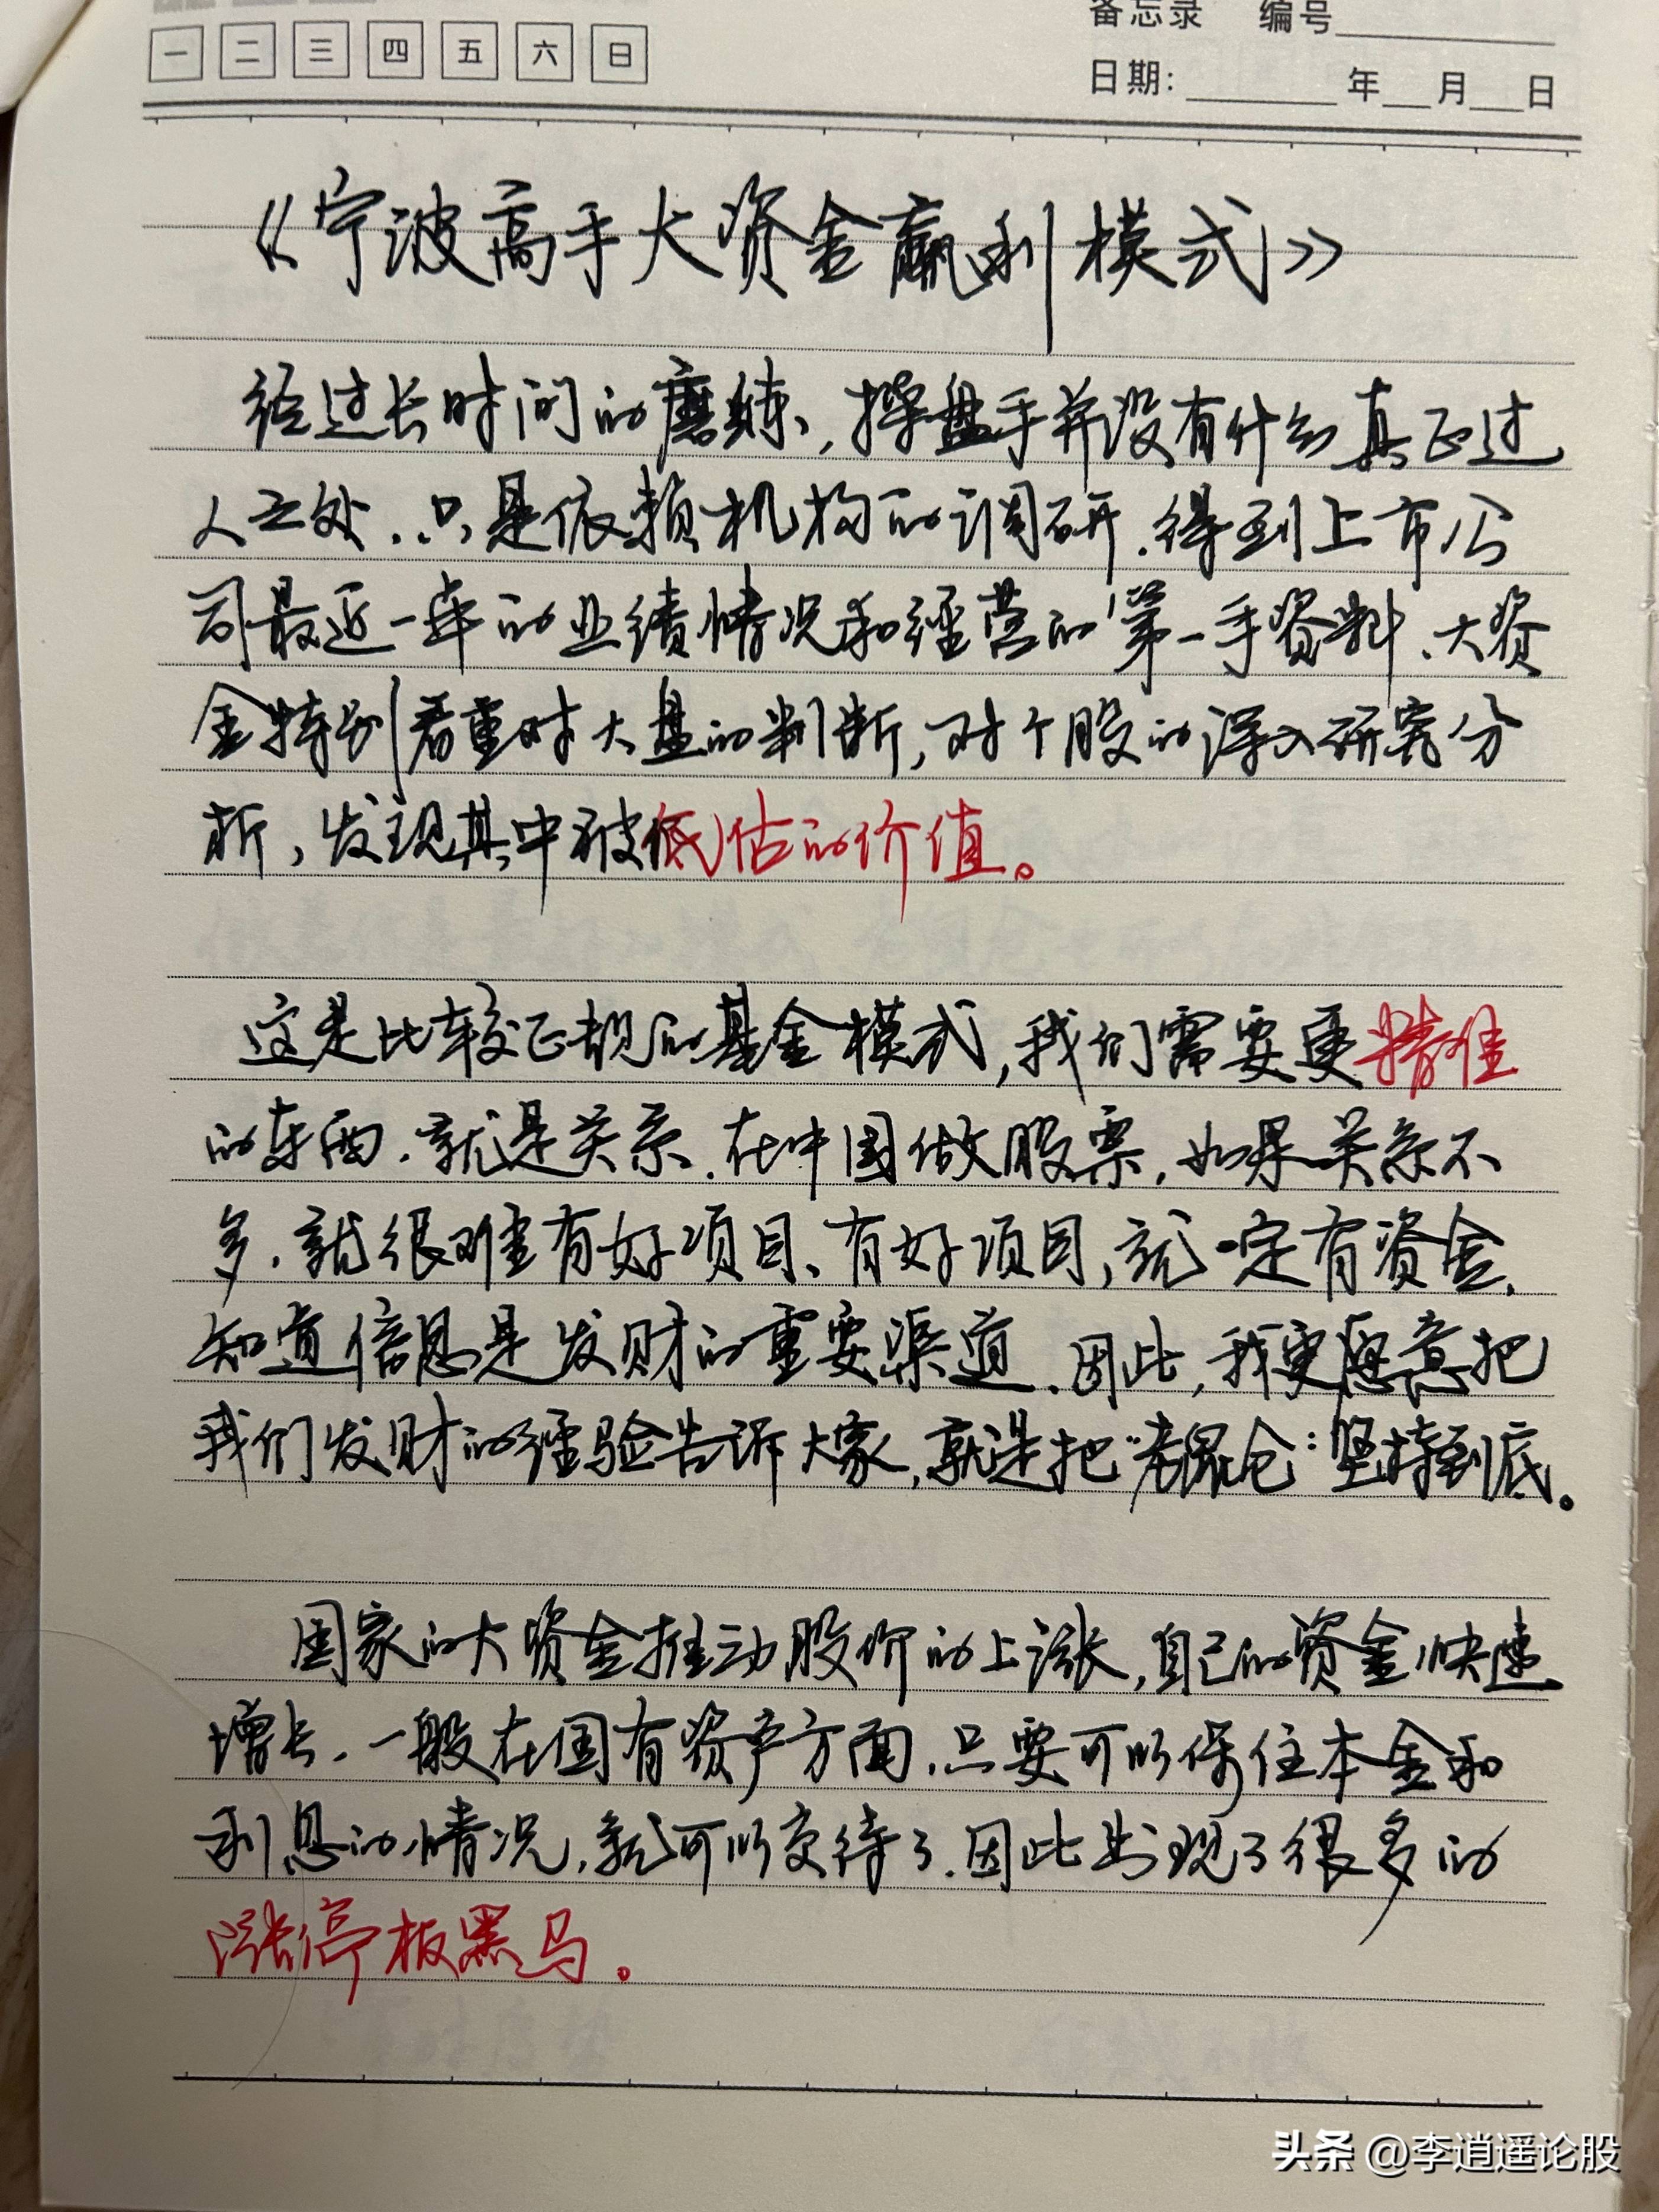 备忘录 编号
一 二 三 四 五 六 日
日期: 年 月 日
《宁波高手大资金赢利模式》
经过长时间的磨练,操盘手并没有什么真正过
人之处.只是依赖机构的调研.得到上市公
司最近一年的业绩情况和经营的第一手资料、大资
金特别看重对大盘的判断,对个股的深入研究分
析,发现其中被低估的价值。
这是比较正规的基金模式,我们需要更精准
的东西.就是关系.在中国做股票,如果关系不
多.就很难有好项目、有好项目,就一定有资金.
知道信息是发财的重要渠道.因此,我更愿意把
我们发财的经验告诉大家,就是把“老昆仑”坚持到底。
国家的大资金推动股价的上涨,自己的资金快速
增长.一般在国有资产方面.只要可以保住本金和
利息的情况,就可以交待了.因此出现了很多的
涨停板黑马。
头条 @李逍遥论股